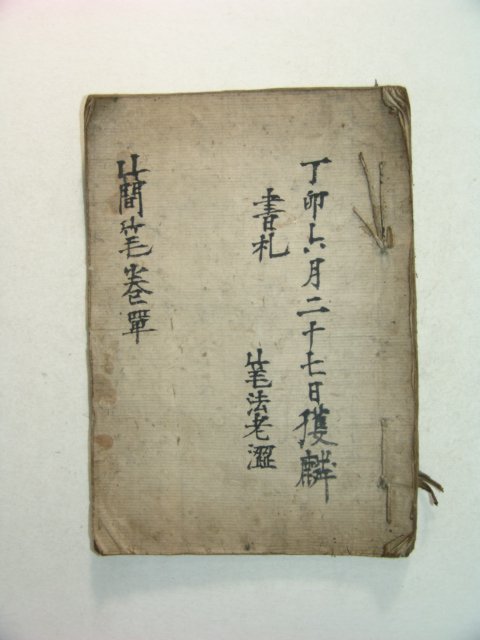 丁卯六月二十七日獲麟
書札
笔法老澀
简笔卷單